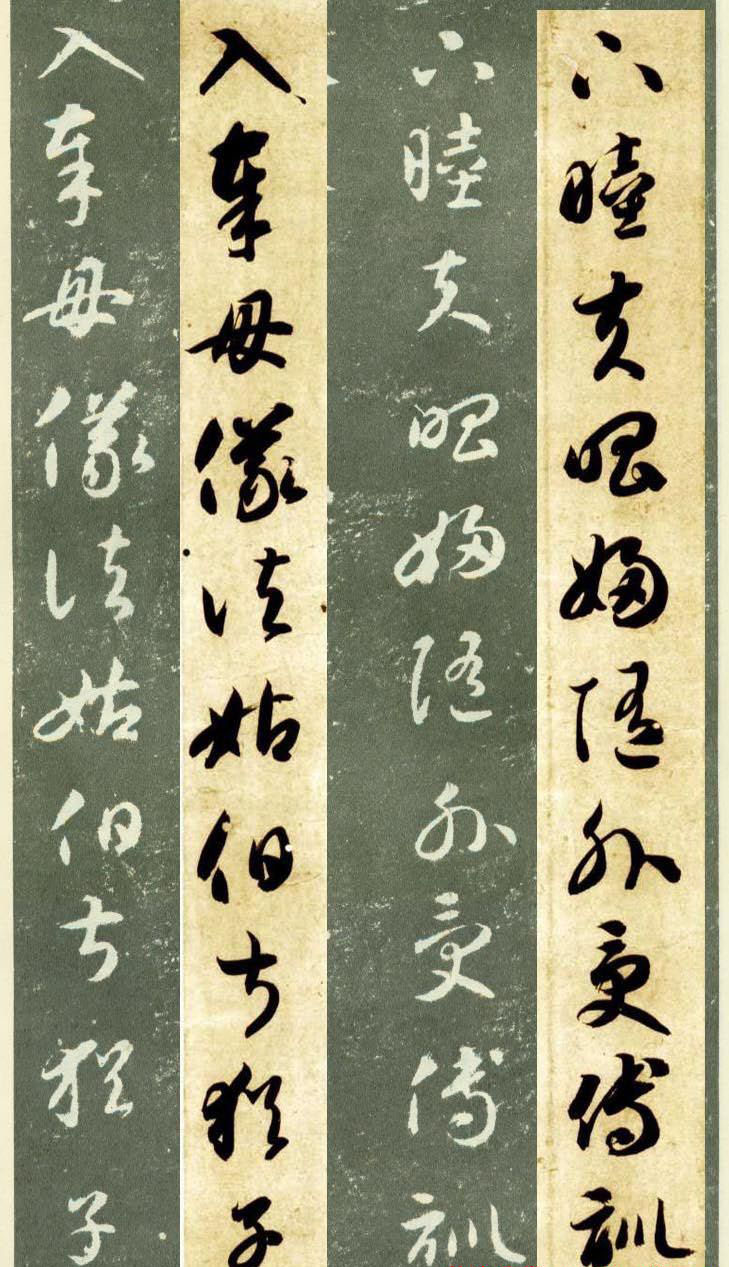 下睦夫唱婦隨外受傅訓
下睦夫唱婦隨外受傅訓
入奉母儀諸姑伯叔猶子
入奉母儀諸姑伯叔猶子